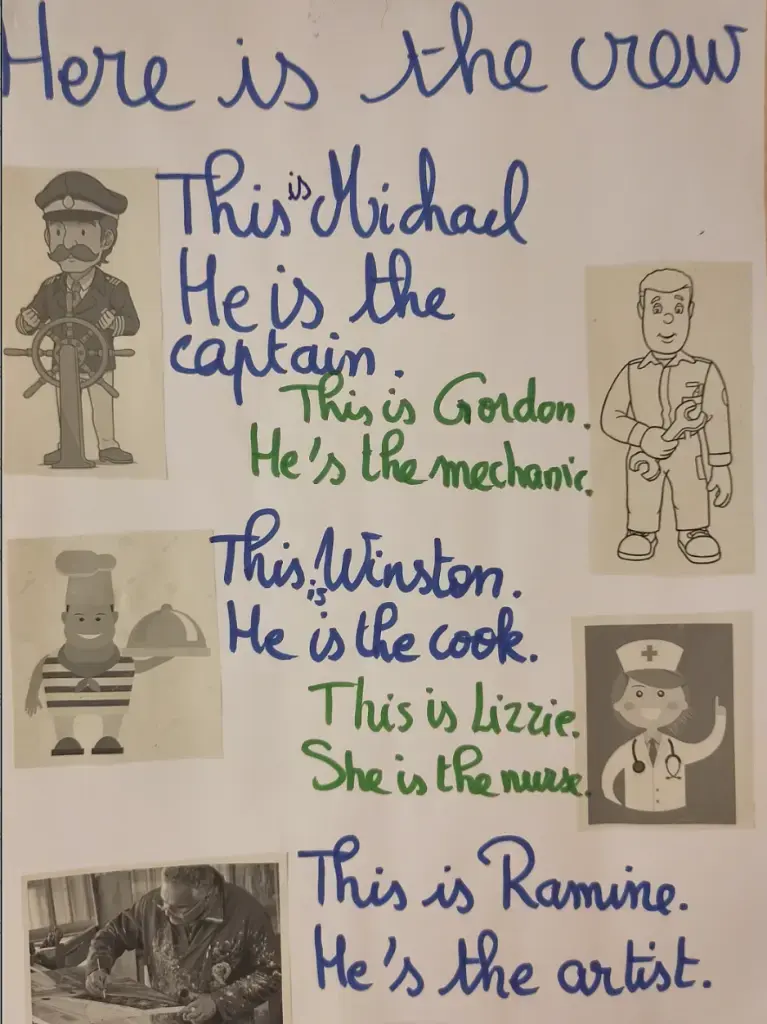 Here is the crew
This is Michael
He is the
captain.
This is Gordon.
He's the mechanic.
This is Winston.
He is the cook.
This is Lizzie.
She is the nurse.
This is Ramine.
He's the artist.